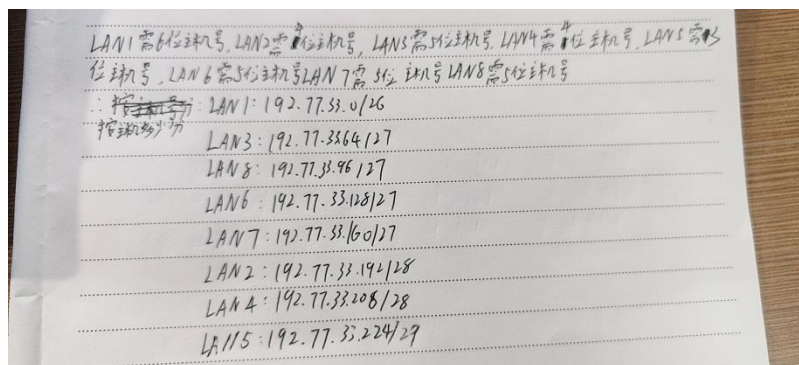 LAN1需6位主机号,LAN2需4位主机号,LAN3需5位主机号,LAN4需4位主机号,LAN5需3
位主机号,LAN6需5位主机号LAN7需5位主机号LAN8需5位主机号
∴ LAN1: 192.77.33.0/26
按主机多少分
LAN3: 192.77.3364/27
LAN8: 192.77.33.96/27
LAN6: 192.77.33.128/27
LAN7: 192.77.33.160/27
LAN2: 192.77.33.192/28
LAN4: 192.77.33.208/28
LAN5: 192.77.33.224/29